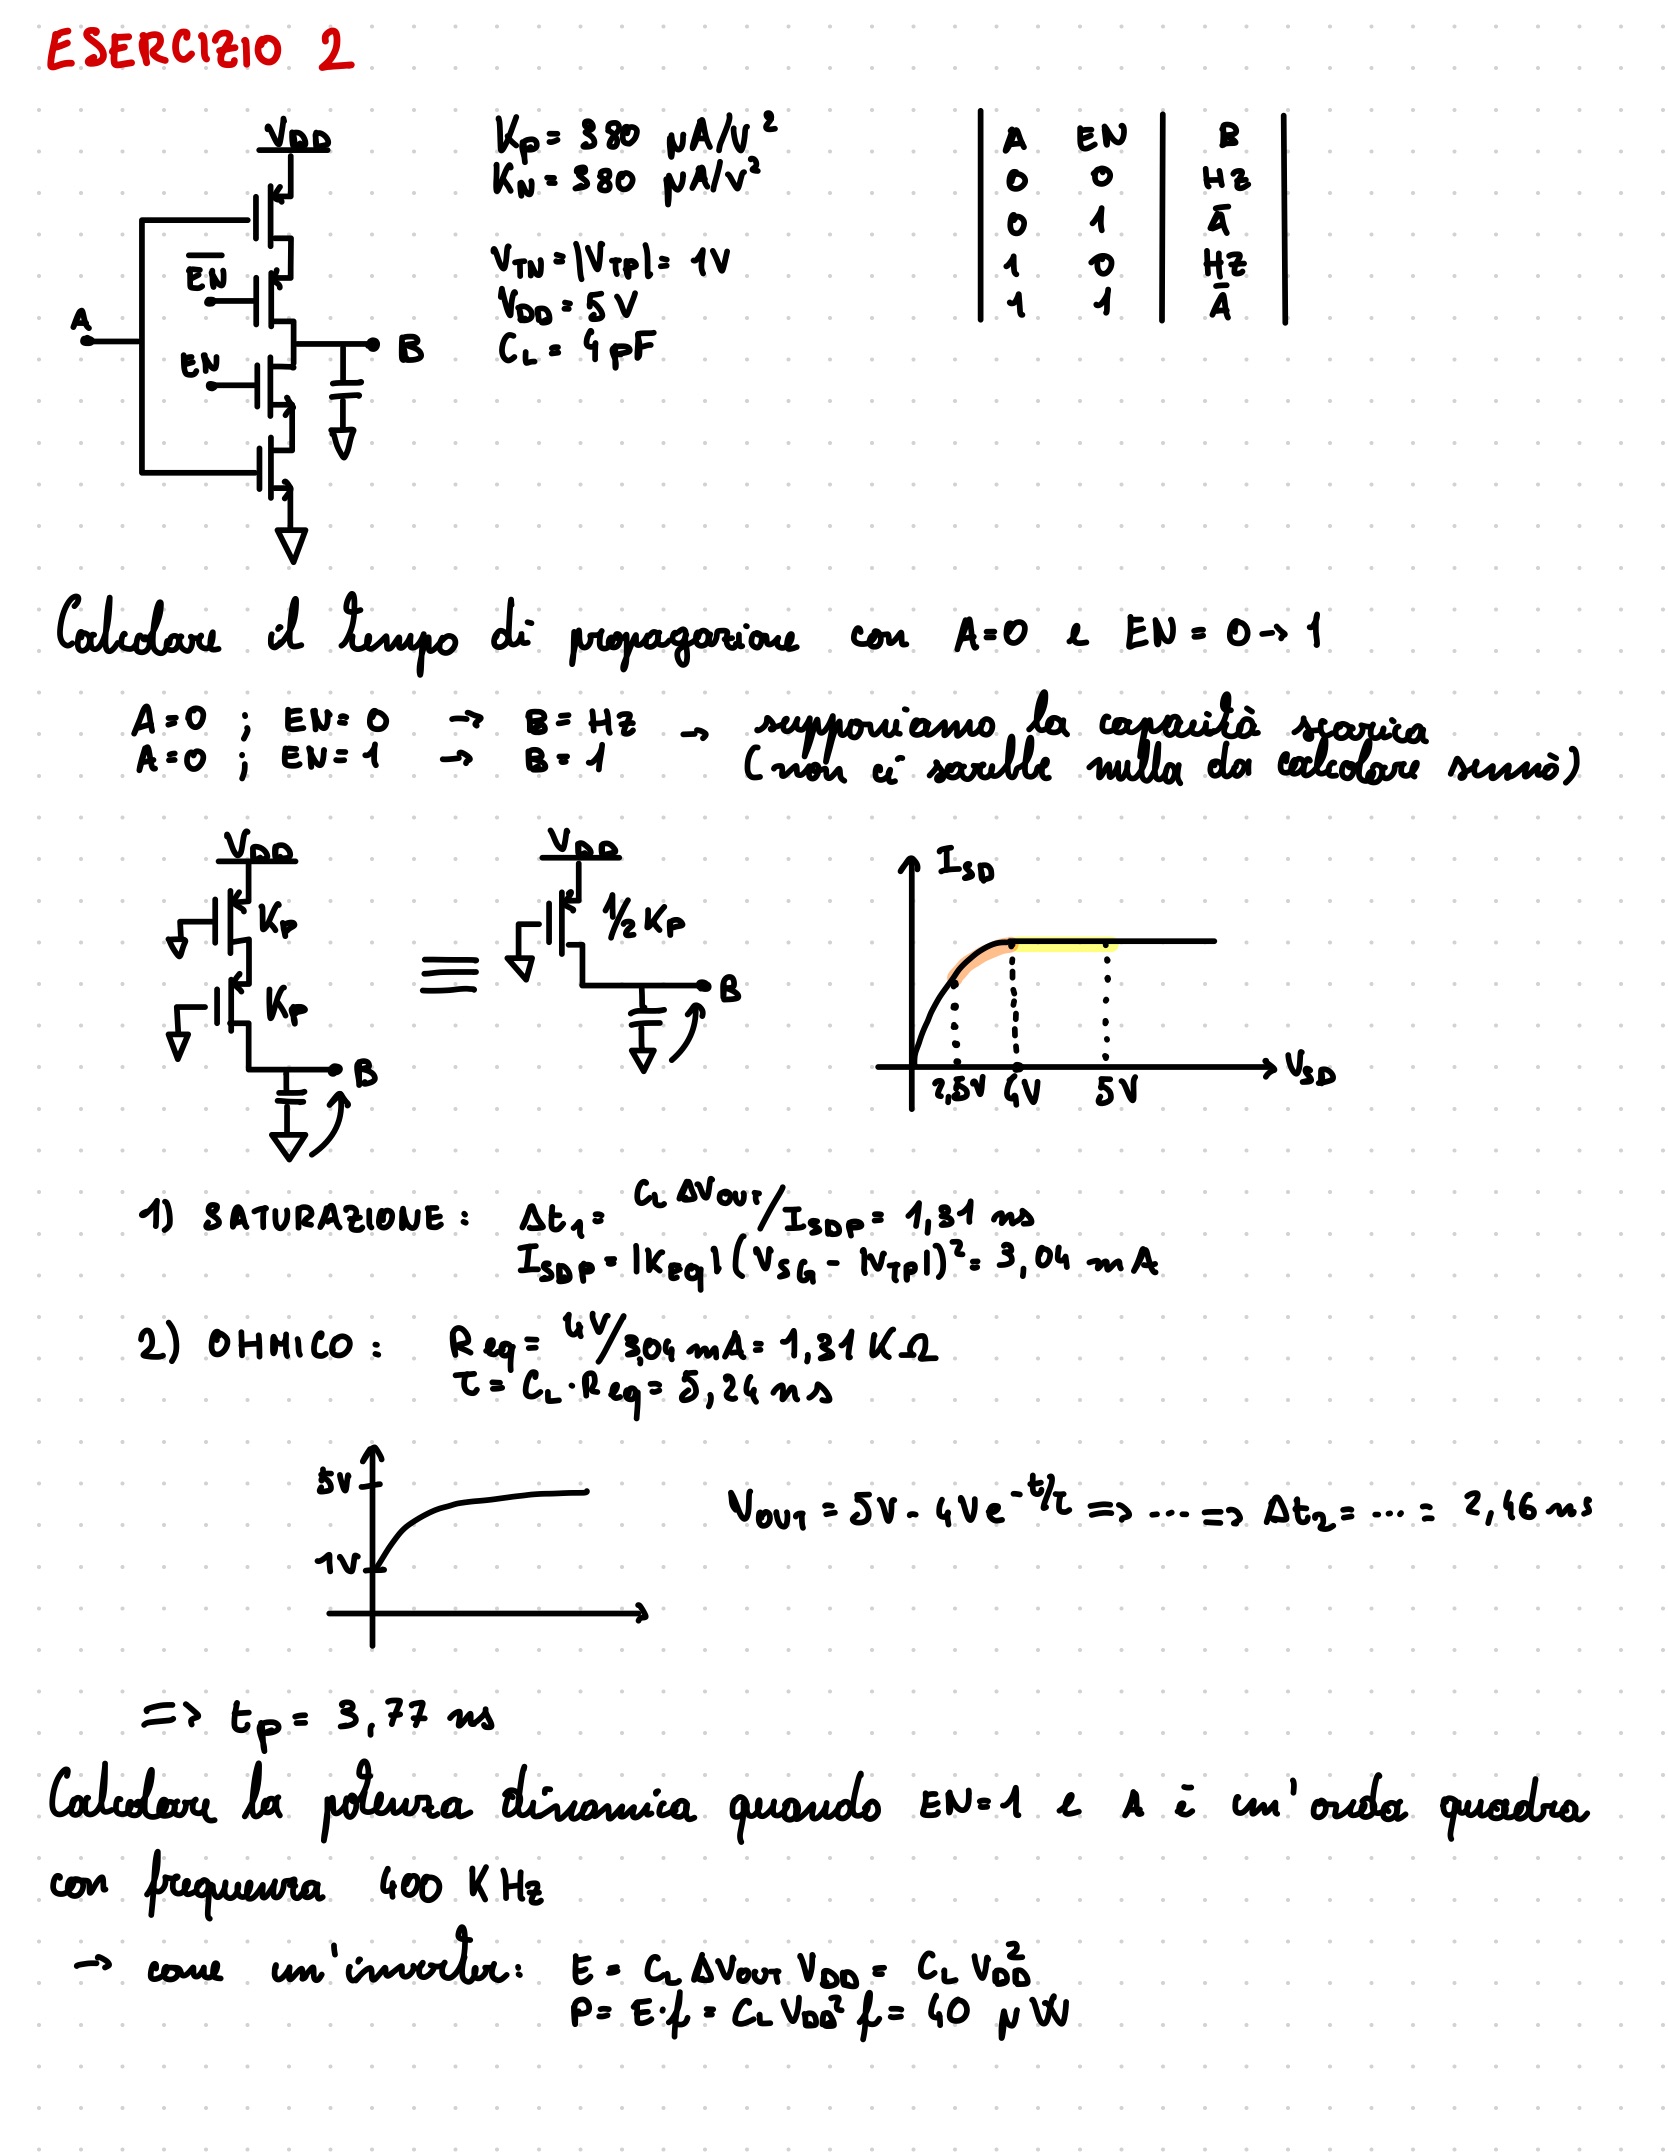 ESERCIZIO 2
VDD
EN̅
A
EN
B
Kp = 380 μA/V²
KN = 380 μA/V²
VTN = |VTP| = 1V
VDD = 5V
CL = 4pF
A EN B
0 0 HZ
0 1 A̅
1 0 HZ
1 1 A̅
Calcolare il tempo di propagazione con A=0 e EN = 0 → 1
A=0 ; EN=0 → B=HZ → supponiamo la capacità scarica
A=0 ; EN=1 → B=1 (non ci sarebbe nulla da calcolare sennò)
VDD
Kp
Kp
B
VDD
½ Kp
B
ISD
2,5V 4V 5V VSD
1) SATURAZIONE : Δt₁ = CL ΔVOUT / ISDP = 1,31 ns
ISDP = |Keq| (VSG - |VTP|)² = 3,04 mA
2) OHMICO : Req = 4V/3,04 mA = 1,31 KΩ
τ = CL · Req = 5,24 ns
5V
1V
VOUT = 5V - 4V e^(-t/τ) => ... => Δt₂ = ... = 2,46 ns
=> tp = 3,77 ns
Calcolare la potenza dinamica quando EN=1 e A è un'onda quadra
con frequenza 400 KHz
→ come un'inverter: E = CL ΔVOUT VDD = CL VDD²
P = E·f = CL VDD² f = 40 μW